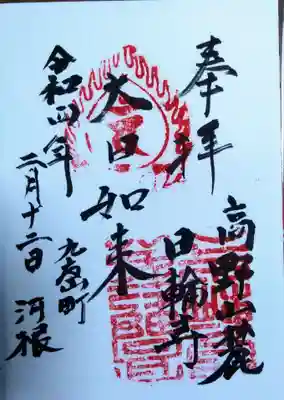 奉拝
高野山麓
日輪寺
大日如来
令和四年
二月十二日
九度山町
河根